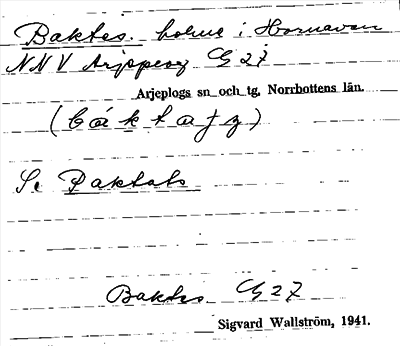 Baktes. holme i Hornavan
NNV Arjeplog G 27
Arjeplogs sn och tg, Norrbottens län.
(båktatz)
Se Paktats
Baktes G 27
Sigvard Wallström, 1941.